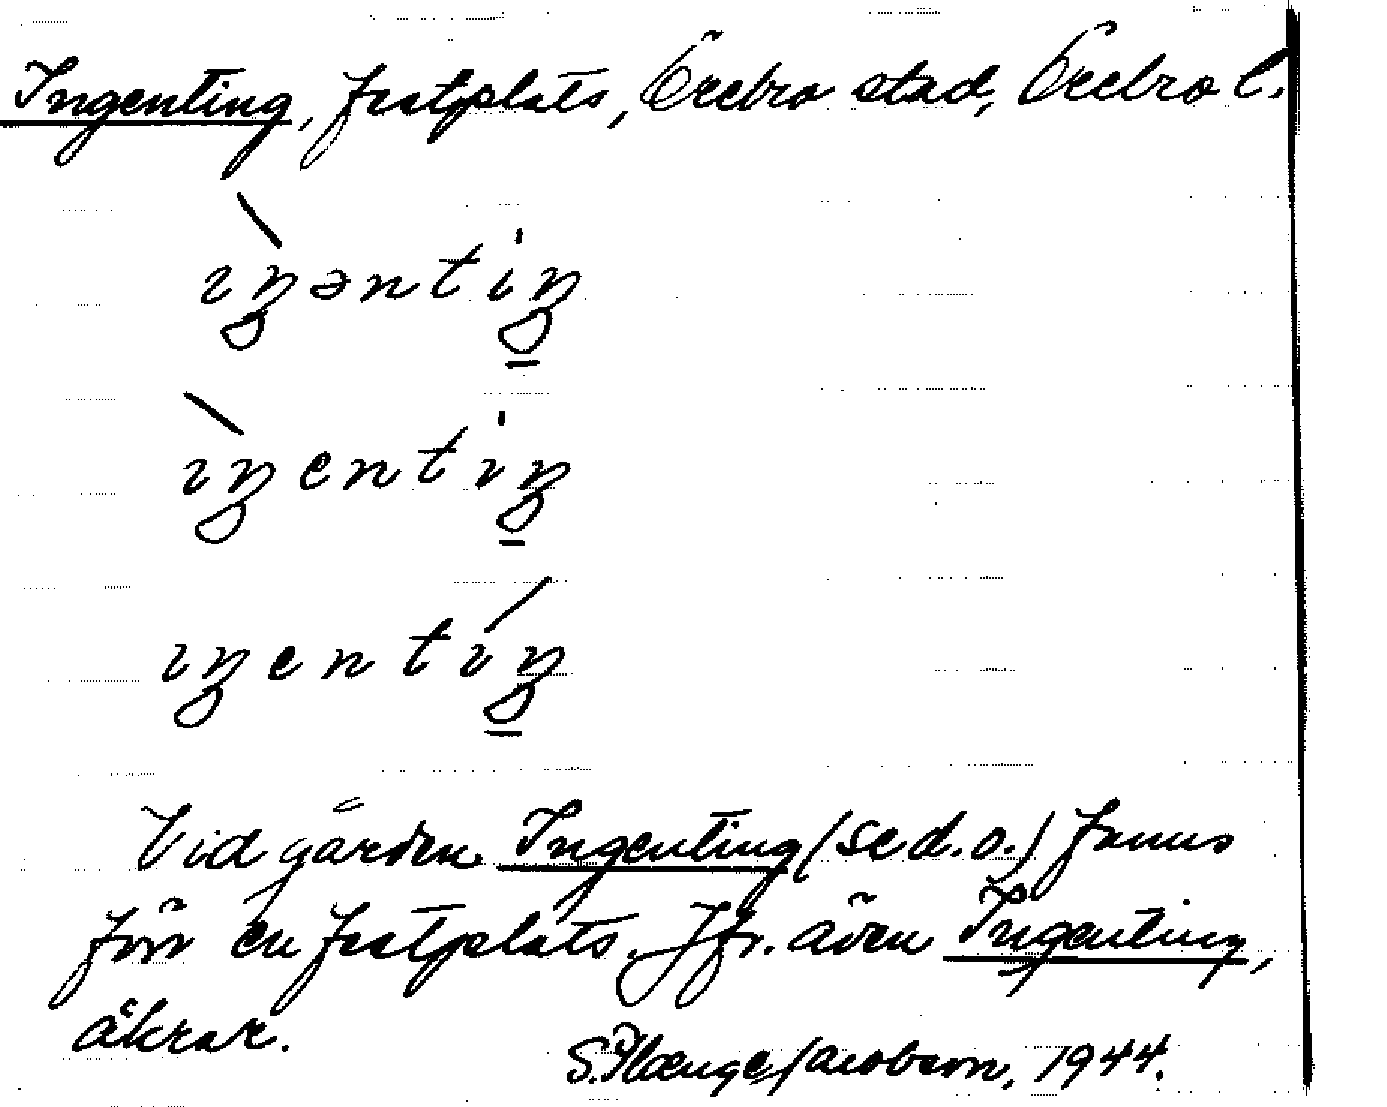 Ingenting, festplats, Örebro stad, Örebro l.
ìŋəntiŋ
ìŋentiŋ
ıŋentíŋ
Vid gården Ingenting (se d. o.) fanns
förr en festplats. Jfr. även Ingenting,
åkrar.
S. Flænge Jacobson, 1944.